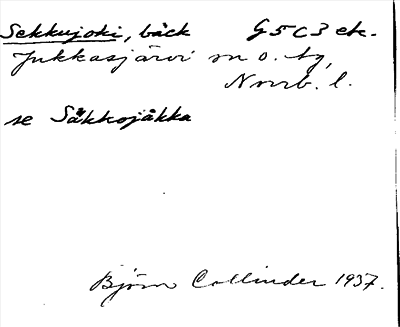 Sekkujoki, bäck G5C3 etc.
Jukkasjärvi sn o. tg,
Norrb. l.
se Såkkojåkka
Björn Collinder 1937.